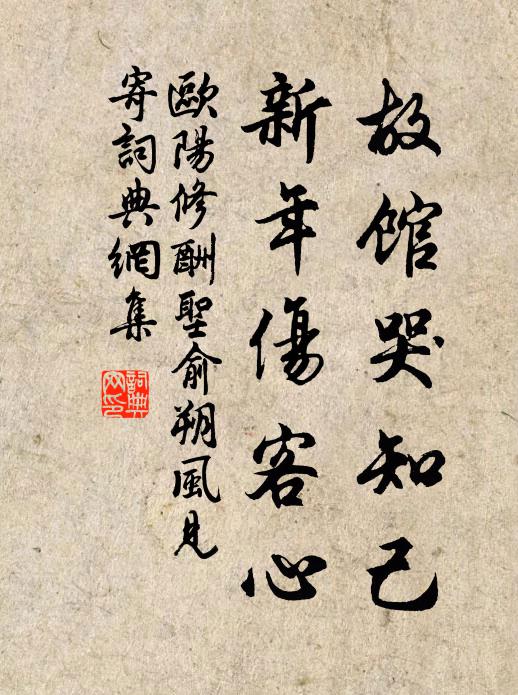 故館哭知己
新年傷客心
歐陽修酬聖俞朔風見
寄詞典網集
詞典
网印